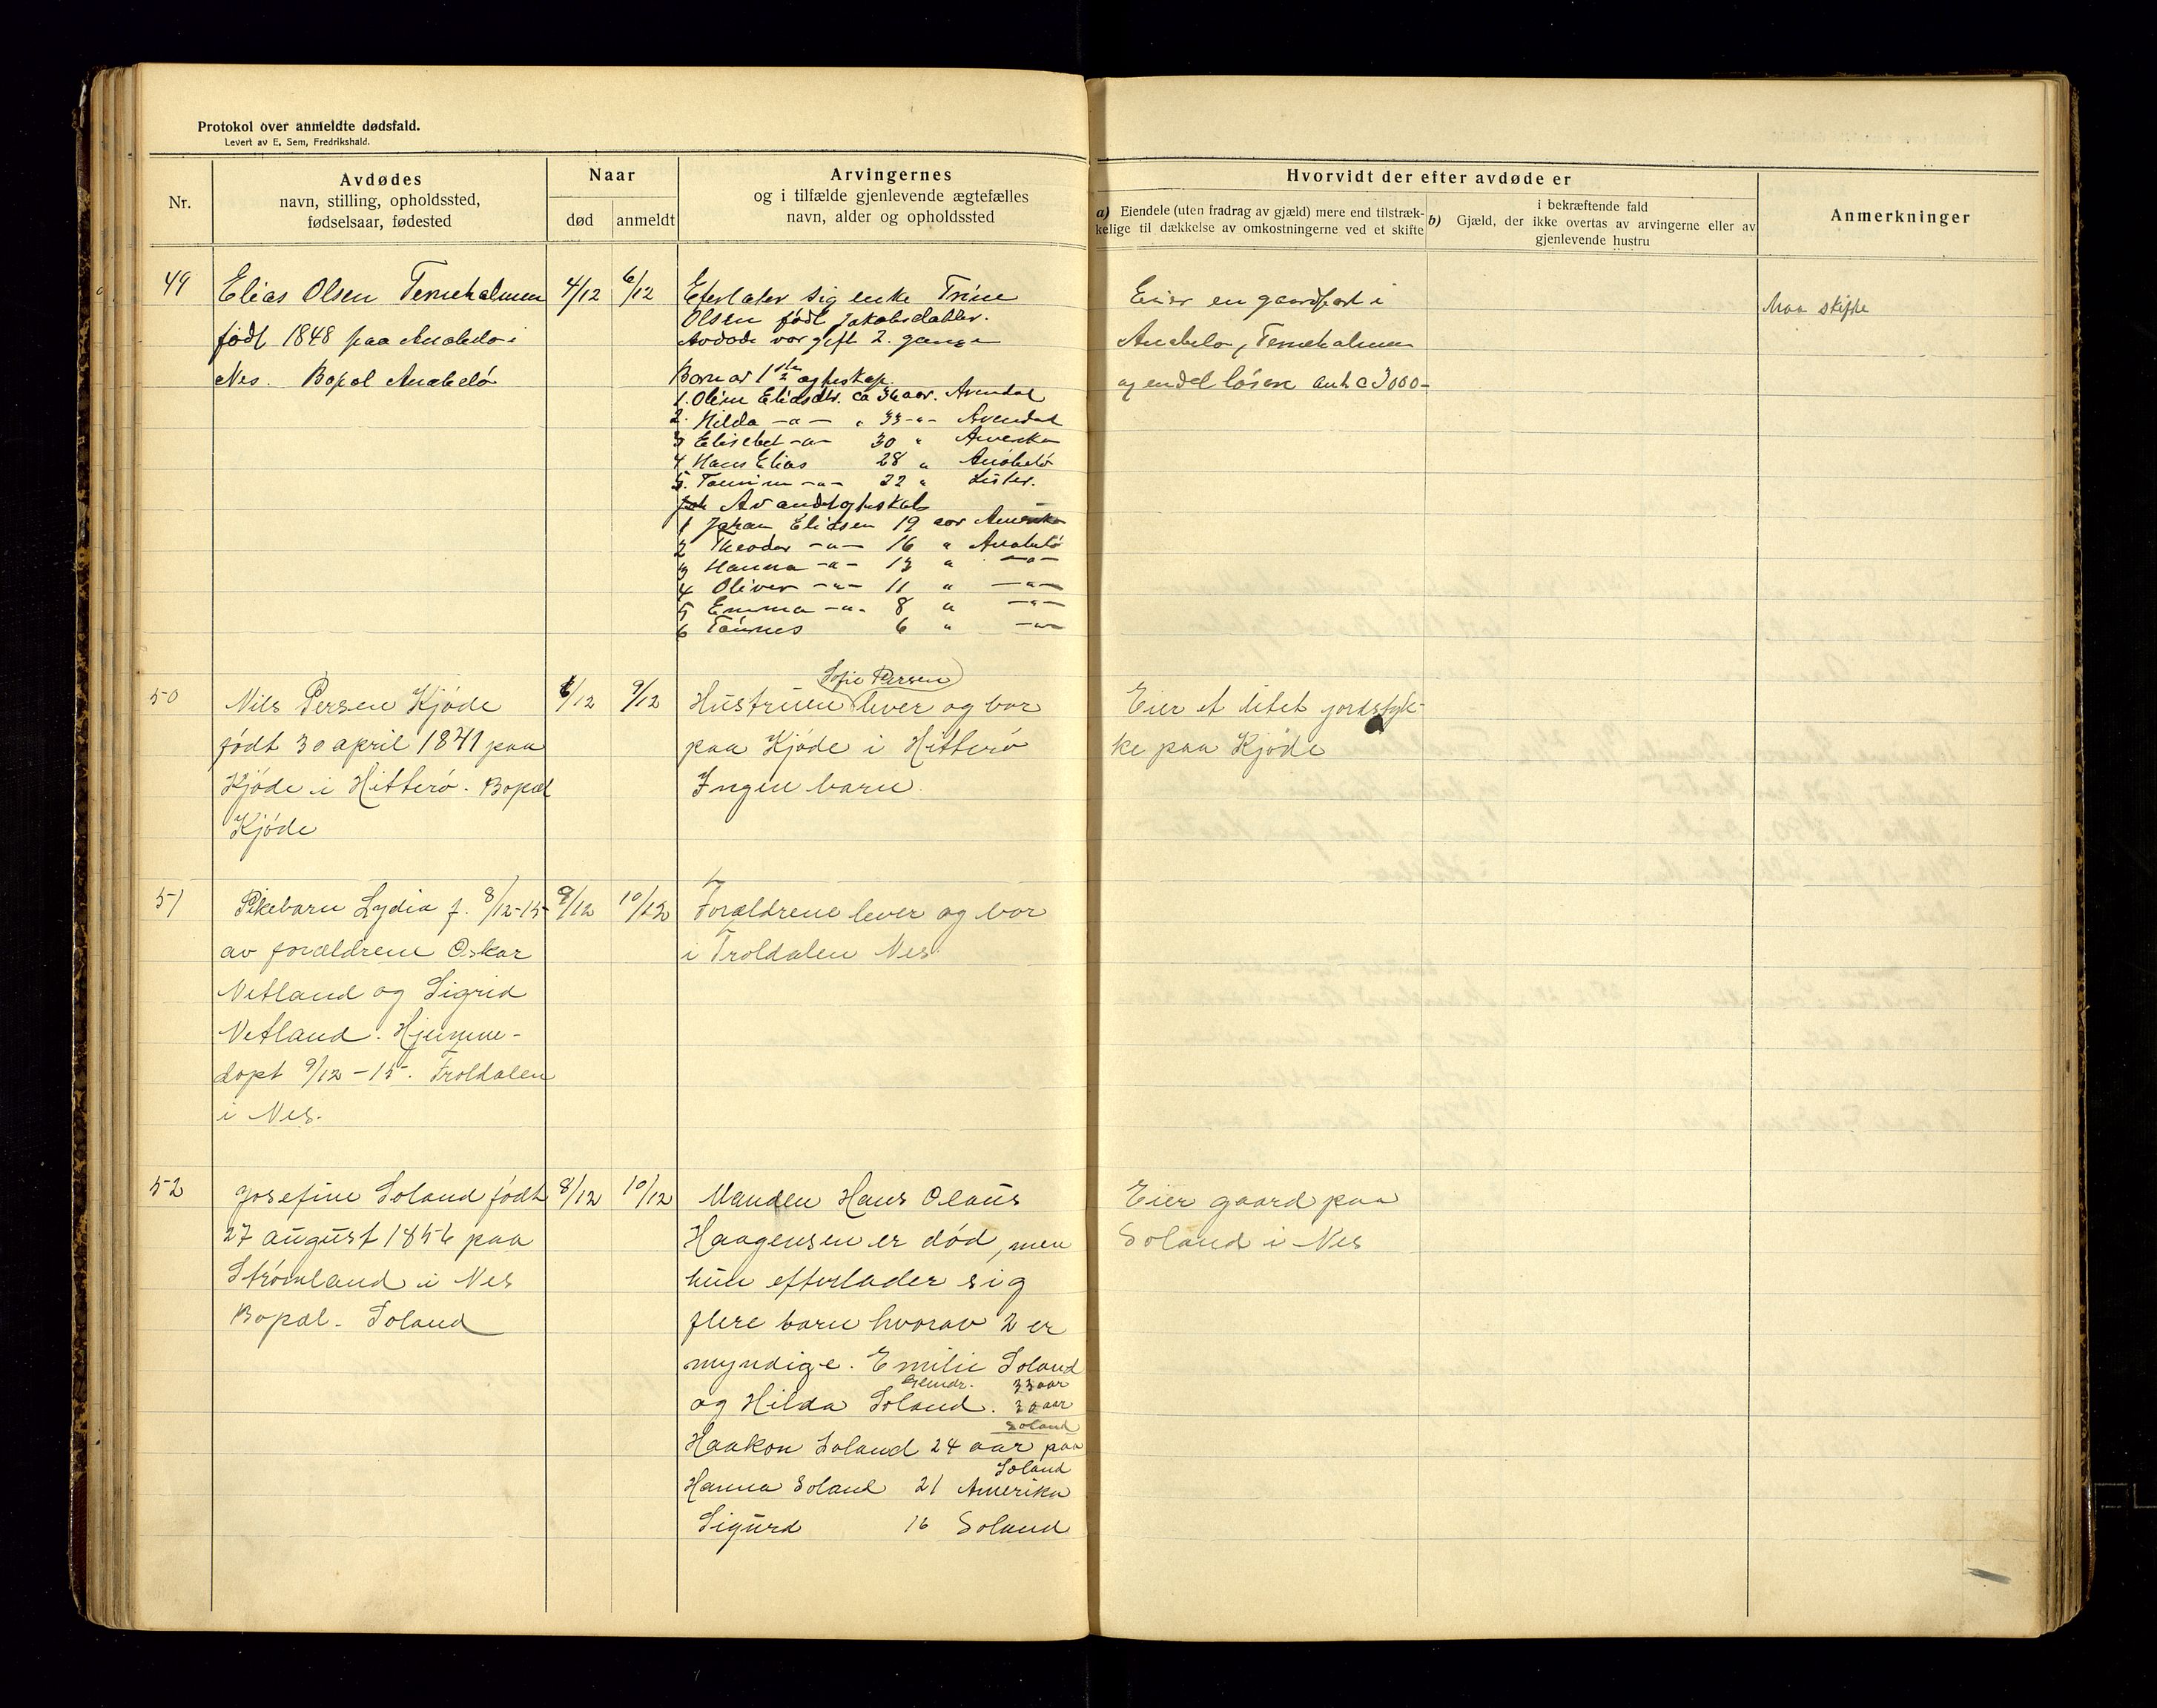 Protokol over anmeldte dødsfald.
Levert av E. Sem, Fredrikshald.
Nr.
Avdødes
navn, stilling, opholdssted,
fødselsaar, fødested
Naar
død
anmeldt
Arvingernes
og i tilfælde gjenlevende ægtefælles
navn, alder og opholdssted
Hvorvidt der efter avdøde er
a) Eiendele (uten fradrag av gjæld) mere end tilstræk-
kelige til dækkelse av omkostningerne ved et skifte
i bekræftende fald
b) Gjæld, der ikke overtas av arvingerne eller av
gjenlevende hustru
Anmerkninger
49
Elias Olsen Terneholmen
født 1848 paa Anabelø i
Nes. Bopæl Anabelø
4/12
6/12
Eterlater sig enke Trine
Olsen født Jakobsdatter.
Avdøde var gift 2. gange
Born av 1ste ægteskap.
1. Oline Eliasdtr. ca 36 aar. Arendal
2. Hilda -"- " 33 -"- Arendal
3 Elisebet -"- 30 " Amerika
4 Hans Elias 28 " Anabelø
5. Tomine -"- 22 " Lister.
Av andet ægteskab
1 Johan Eliasen 19 aar Amerika
2 Theodor -"- 16 " Anabelø
3 Hanna -"- 13 " -"-
4 Oliver -"- 11 " -"-
5 Emma -"- 8 " -"-
6 Tønnes 6 " -"-
Eier en gaardpart i
Anabelø, Terneholmen
og endel løsøre ant c 3000-
Maa skifte
50
Nils Persen Kjøde
født 30 april 1841 paa
Kjøde i Hitterø. Bopæl
Kjøde
6/12
9/12
Sofie Persen
Hustruen lever og bor
paa Kjøde i Hitterø
Ingen barn.
Eier et litet jordstyk-
ke paa Kjøde
51
Pikebarn Lydia f. 8/12-15
av forældrene Oskar
Netland og Sigrid
Netland. Hjemme-
døpt 9/12-15. Troldalen
i Nes.
9/12
10/12
Forældrene lever og bor
i Troldalen Nes.
52
Josefine Soland født
27 august 1856 paa
Strømland i Nes
Bopæl. Soland
8/12
10/12
Manden Hans Olaus
Haagensen er død, men
hun efterlader sig
flere barn hvorav 2 er
myndige. Emilie Soland
33 aar
og Hilda Soland. 30 aar
Soland
Haakon Soland 24 aar paa
Soland
Hanna Soland 21 Amerika
Sigurd 16 Soland
Eier gaard paa
Soland i Nes